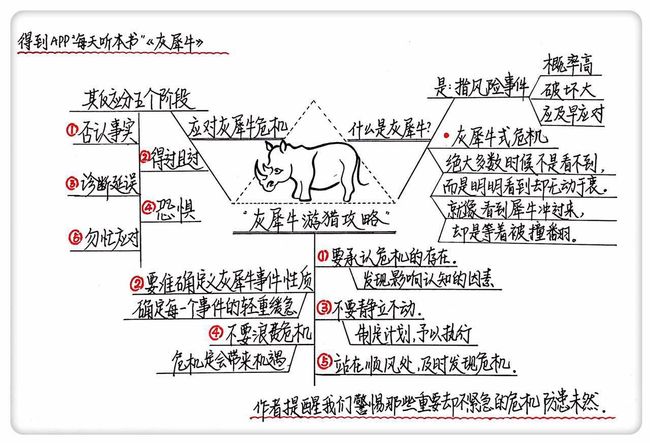 得到APP“每天听本书”《灰犀牛》
其反应分五个阶段
①否认事实
②得过且过
③诊断延误
④恐惧
⑤匆忙应对
应对灰犀牛危机
什么是灰犀牛?
是:指风险事件
概率高
破坏大
应及早应对
灰犀牛式危机
绝大多数时候不是看不到,
而是明明看到却无动于衷。
就像看到犀牛冲过来,
却是等着被撞翻。
“灰犀牛游猎攻略”
①要承认危机的存在.
发现影响认知的因素
②要准确定义灰犀牛事件性质
确定每一个事件的轻重缓急
③不要静立不动.
制定计划,予以执行
④不要浪费危机
危机是会带来机遇.
⑤站在顺风处,及时发现危机.
作者提醒我们警惕那些重要却不紧急的危机 防患未然.